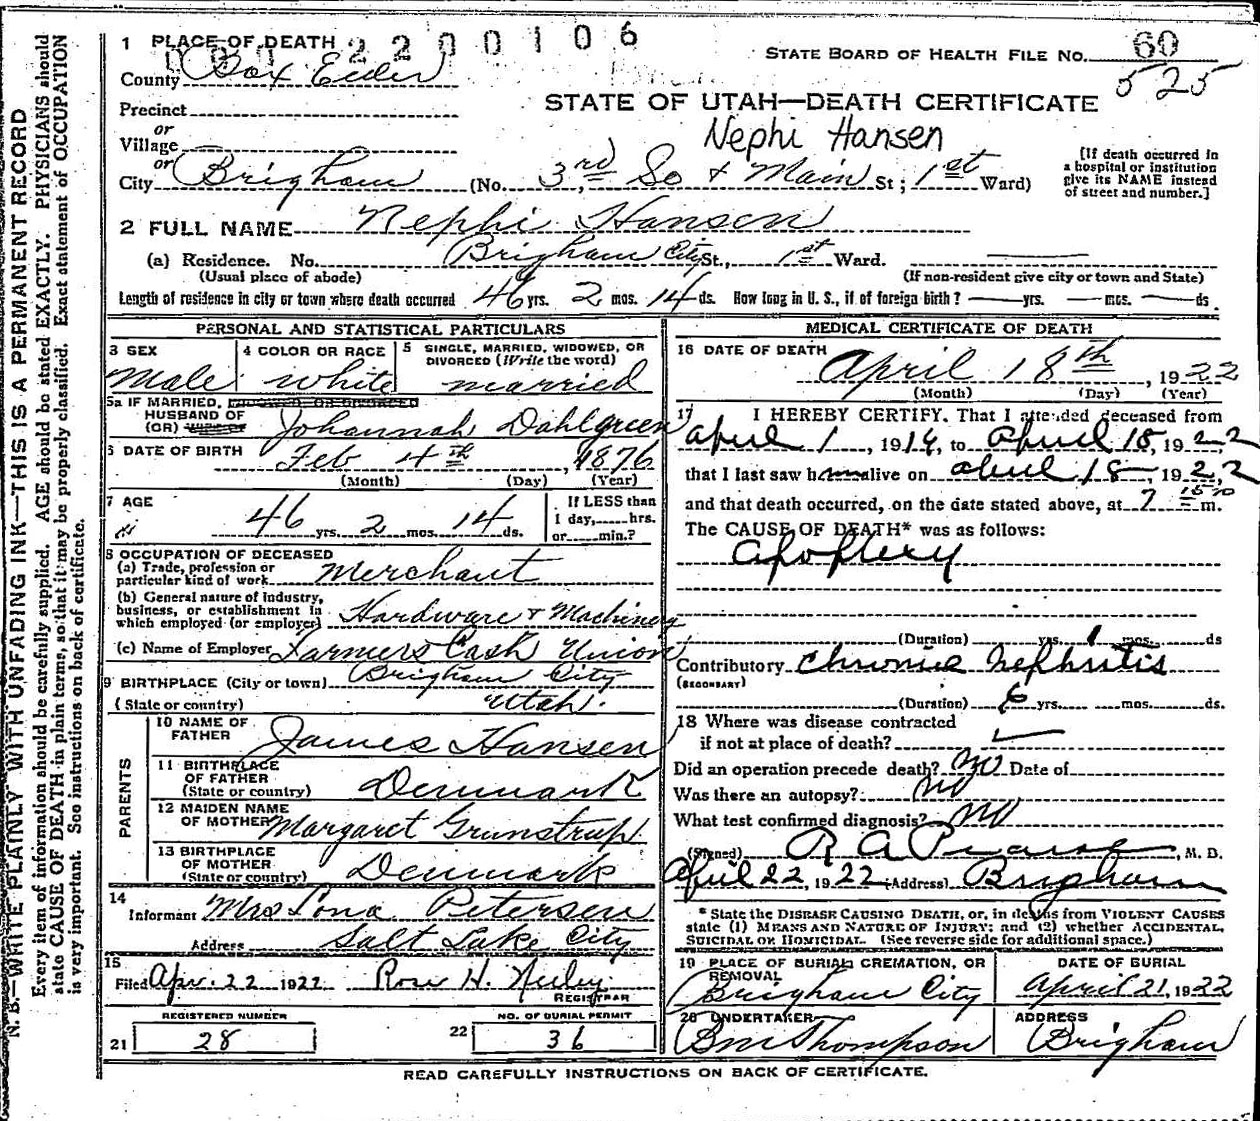 1 PLACE OF DEATH
2200106
STATE BOARD OF HEALTH FILE NO. 60
525
County Box Elder
STATE OF UTAH—DEATH CERTIFICATE
Precinct
Nephi Hansen
or
Village
or
City Brigham (No. 3rd So & Main St; 1st Ward)
[If death occurred in a hospital or institution give its NAME instead of street and number.]
2 FULL NAME Nephi Hansen
(a) Residence. No. Brigham City St., 1st Ward.
(Usual place of abode) (If non-resident give city or town and State)
Length of residence in city or town where death occurred 46 yrs. 2 mos. 14 ds. How long in U. S., if of foreign birth? — yrs. — mos. — ds.
PERSONAL AND STATISTICAL PARTICULARS
3 SEX
Male
4 COLOR OR RACE
white
5 SINGLE, MARRIED, WIDOWED, OR DIVORCED (Write the word)
married
5a IF MARRIED, WIDOWED, OR DIVORCED
HUSBAND OF
(OR) WIFE OF
Johannah Dahlgreen
6 DATE OF BIRTH
Feb 4th, 1876
(Month) (Day) (Year)
7 AGE
46 yrs. 2 mos. 14 ds.
If LESS than
1 day, hrs.
or min.?
8 OCCUPATION OF DECEASED
(a) Trade, profession or particular kind of work Merchant
(b) General nature of industry, business, or establishment in which employed (or employer) Hardware & Machinery
(c) Name of Employer Farmers Cash Union
9 BIRTHPLACE (City or town) Brigham City
(State or country) Utah.
PARENTS
10 NAME OF FATHER James Hansen
11 BIRTHPLACE OF FATHER (State or country) Denmark
12 MAIDEN NAME OF MOTHER Margaret Grunstrup
13 BIRTHPLACE OF MOTHER (State or country) Denmark
14
Informant Mrs Petersen
Address Salt Lake City
15
Filed Apr. 22 1922 Rose H.
REGISTRAR
REGISTERED NUMBER
21 28
NO. OF BURIAL PERMIT
22 36
MEDICAL CERTIFICATE OF DEATH
16 DATE OF DEATH
April 18th, 1922
(Month) (Day) (Year)
17 I HEREBY CERTIFY, That I attended deceased from
April 1, 19 to April 18, 1922
that I last saw h alive on April 18, 1922,
and that death occurred, on the date stated above, at 7 m.
The CAUSE OF DEATH* was as follows:
Apoplexy
(Duration) yrs. 1 mos. ds
Contributory Chronic Nephritis
(SECONDARY)
(Duration) 6 yrs. mos. ds.
18 Where was disease contracted
if not at place of death?
Did an operation precede death? No Date of
Was there an autopsy? No
What test confirmed diagnosis? No
(Signed) R A Pearse, M. D.
April 22, 1922 (Address) Brigham
* State the DISEASE CAUSING DEATH, or, in deaths from VIOLENT CAUSES
state (1) MEANS AND NATURE OF INJURY; and (2) whether ACCIDENTAL,
SUICIDAL OR HOMICIDAL. (See reverse side for additional space.)
19 PLACE OF BURIAL, CREMATION, OR REMOVAL
Brigham City
DATE OF BURIAL
April 21, 1922
20 UNDERTAKER
B M Thompson
ADDRESS
Brigham
READ CAREFULLY INSTRUCTIONS ON BACK OF CERTIFICATE.
N. B.—WRITE PLAINLY WITH UNFADING INK—THIS IS A PERMANENT RECORD
Every item of information should be carefully supplied. AGE should be stated EXACTLY. PHYSICIANS should
state CAUSE OF DEATH in plain terms, so that it may be properly classified. Exact statement of OCCUPATION
is very important. See instructions on back of certificate.